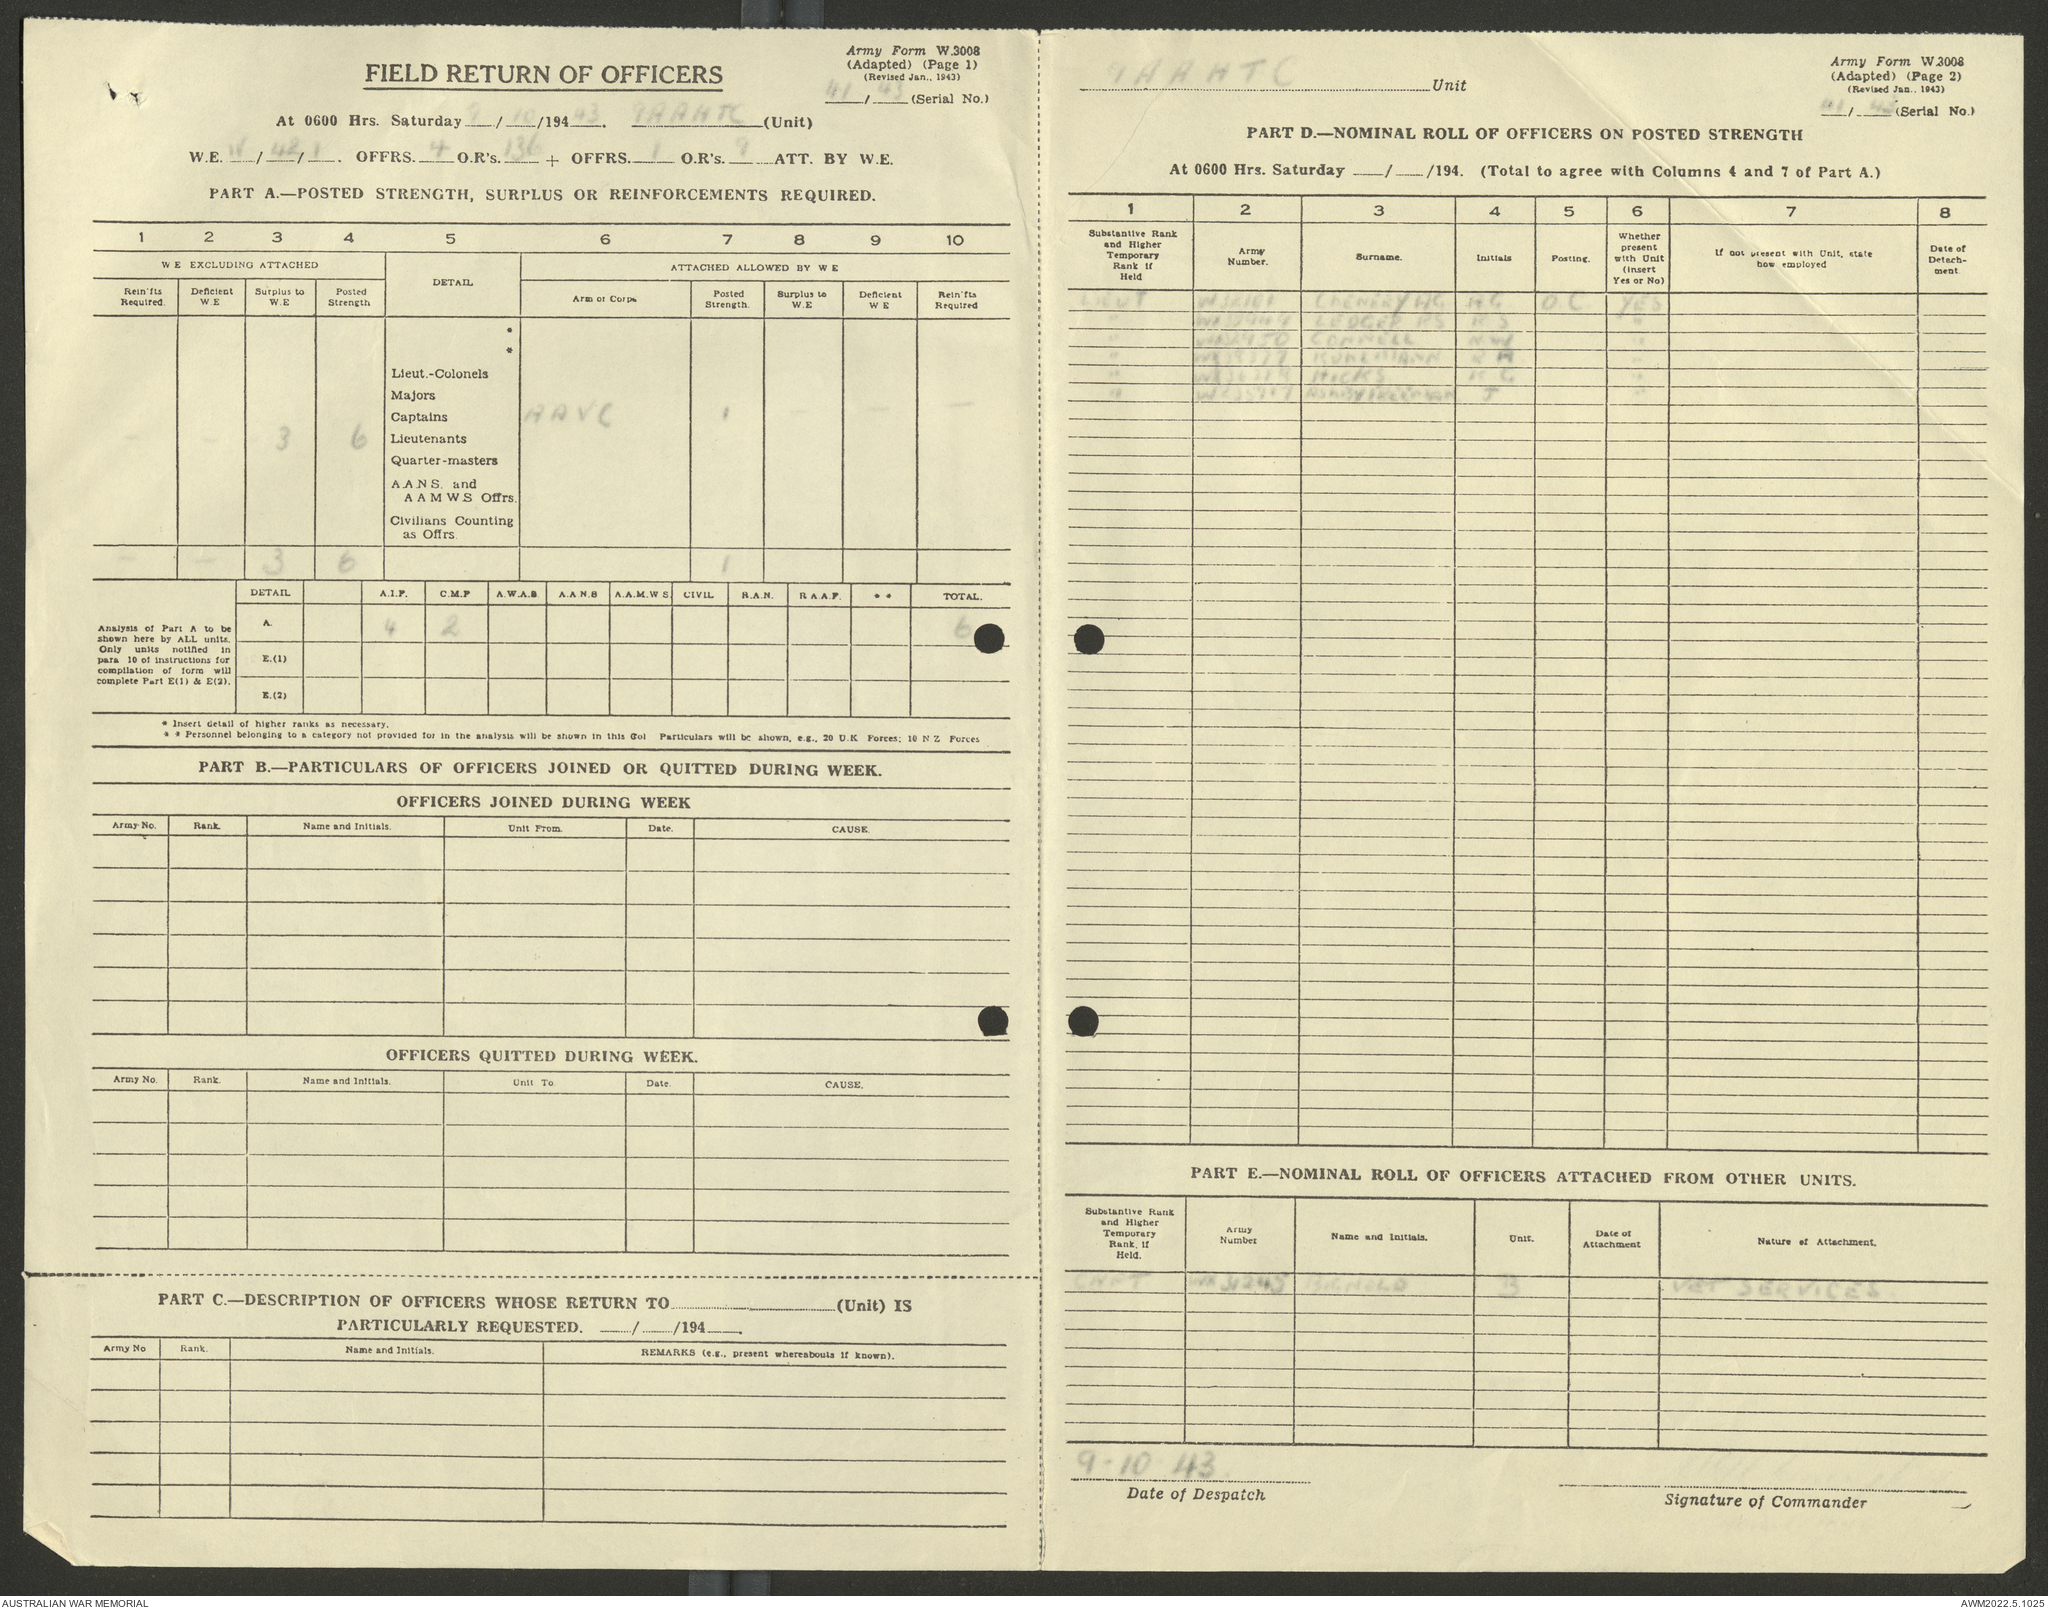 Army Form W.3008
(Adapted) (Page 1)
(Revised Jan., 1943)
41/43 (Serial No.)
FIELD RETURN OF OFFICERS
At 0600 Hrs. Saturday 9/10/1943. 9AAHTC (Unit)
W.E. /48/1. OFFRS. 4 O.R's. 136 + OFFRS. 1 O.R's. 9 ATT. BY W.E.
PART A.—POSTED STRENGTH, SURPLUS OR REINFORCEMENTS REQUIRED.
1 2 3 4 5 6 7 8 9 10
W E EXCLUDING ATTACHED
DETAIL
ATTACHED ALLOWED BY W E
Rein'fts Required.
Deficient W.E
Surplus to W.E
Posted Strength
Arm or Corps
Posted Strength.
Surplus to W.E
Deficient W E
Rein'fts Required
*
*
Lieut.-Colonels
Majors
Captains AAVC 1 — — —
— — 3 6 Lieutenants
Quarter-masters
A.A.N.S. and
A A M W.S Offrs.
Civilians Counting
as Offrs.
— — 3 6 1
DETAIL A.I.F. C.M.F A.W.A.S. A.A.N.S A.A.M.W S. CIVIL R.A.N. R A.A.F. * * TOTAL.
Analysis of Part A to be
shown here by ALL units.
Only units notified in
para 10 of instructions for
compilation of form will
complete Part E(1) & E(2).
A. 4 2 6
E.(1)
E.(2)
* Insert detail of higher ranks as necessary.
* * Personnel belonging to a category not provided for in the analysis will be shown in this Col Particulars will be shown, e.g., 20 U.K Forces; 10 N Z Forces
PART B.—PARTICULARS OF OFFICERS JOINED OR QUITTED DURING WEEK.
OFFICERS JOINED DURING WEEK
Army No. Rank. Name and Initials. Unit From. Date. CAUSE.
OFFICERS QUITTED DURING WEEK.
Army No. Rank. Name and Initials. Unit To Date. CAUSE.
PART C.—DESCRIPTION OF OFFICERS WHOSE RETURN TO (Unit) IS
PARTICULARLY REQUESTED. / /194 .
Army No Rank. Name and Initials. REMARKS (e.g., present whereabouts if known).
9AAHTC Unit
Army Form W.3008
(Adapted) (Page 2)
(Revised Jan., 1943)
41/43 (Serial No.)
PART D.—NOMINAL ROLL OF OFFICERS ON POSTED STRENGTH
At 0600 Hrs. Saturday / /194. (Total to agree with Columns 4 and 7 of Part A.)
1 2 3 4 5 6 7 8
Substantive Rank and Higher Temporary Rank if Held
Army Number.
Surname.
Initials
Posting.
Whether present with Unit (insert Yes or No)
If not present with Unit, state how employed
Date of Detach-ment.
LIEUT CHENERY HG HG O.C. YES
" LEDGER "
" CONNELL N W "
" KUHLMANN R H "
" HICKS K G "
" J "
PART E.—NOMINAL ROLL OF OFFICERS ATTACHED FROM OTHER UNITS.
Substantive Rank and Higher Temporary Rank, if Held.
Army Number
Name and Initials.
Unit.
Date of Attachment
Nature of Attachment.
CAPT B VET SERVICES.
9-10 43.
Date of Despatch
Signature of Commander
AUSTRALIAN WAR MEMORIAL
AWM2022.5.1025